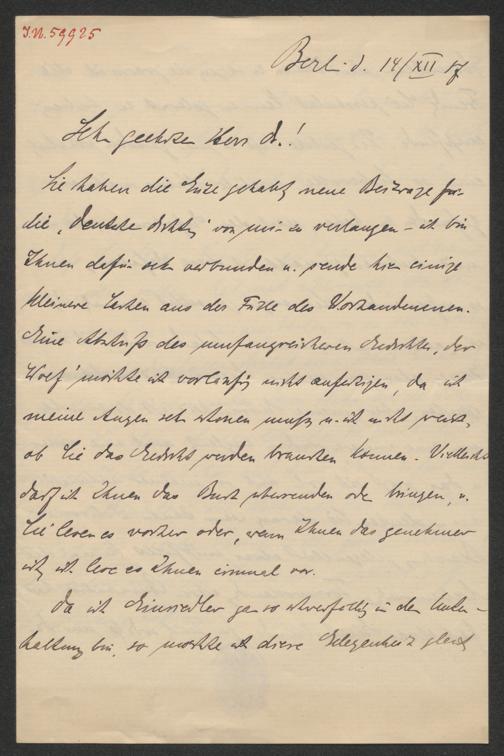 J.N. 59925
Berl. d. 14/XII 87
Sehr geehrter Herr Dr.!
Sie haben die Güte gehabt, neue Beiträge für
die „Deutsche Dichtg" von mir zu verlangen – ich bin
Ihnen dafür sehr verbunden u. sende hier einige
kleinere Sachen aus der Fülle des Vorhandenen.
Eine Abschrift des umfangreicheren Gedichtes, der
möchte ich vorläufig nicht anfertigen, da ich
meine Augen sehr schonen muß u. ich nicht weiß,
ob Sie das Gedicht werden brauchen können. Vielleicht
darf ich Ihnen das Buch übersenden oder bringen, u.
Sie lesen es vorher oder, wenn Ihnen das genehmer
ist, ich lese es Ihnen einmal vor.
Da ich Einsiedler gar so schwerfällig in der Unter-
haltung bin, so möchte ich diese Gelegenheit gleich